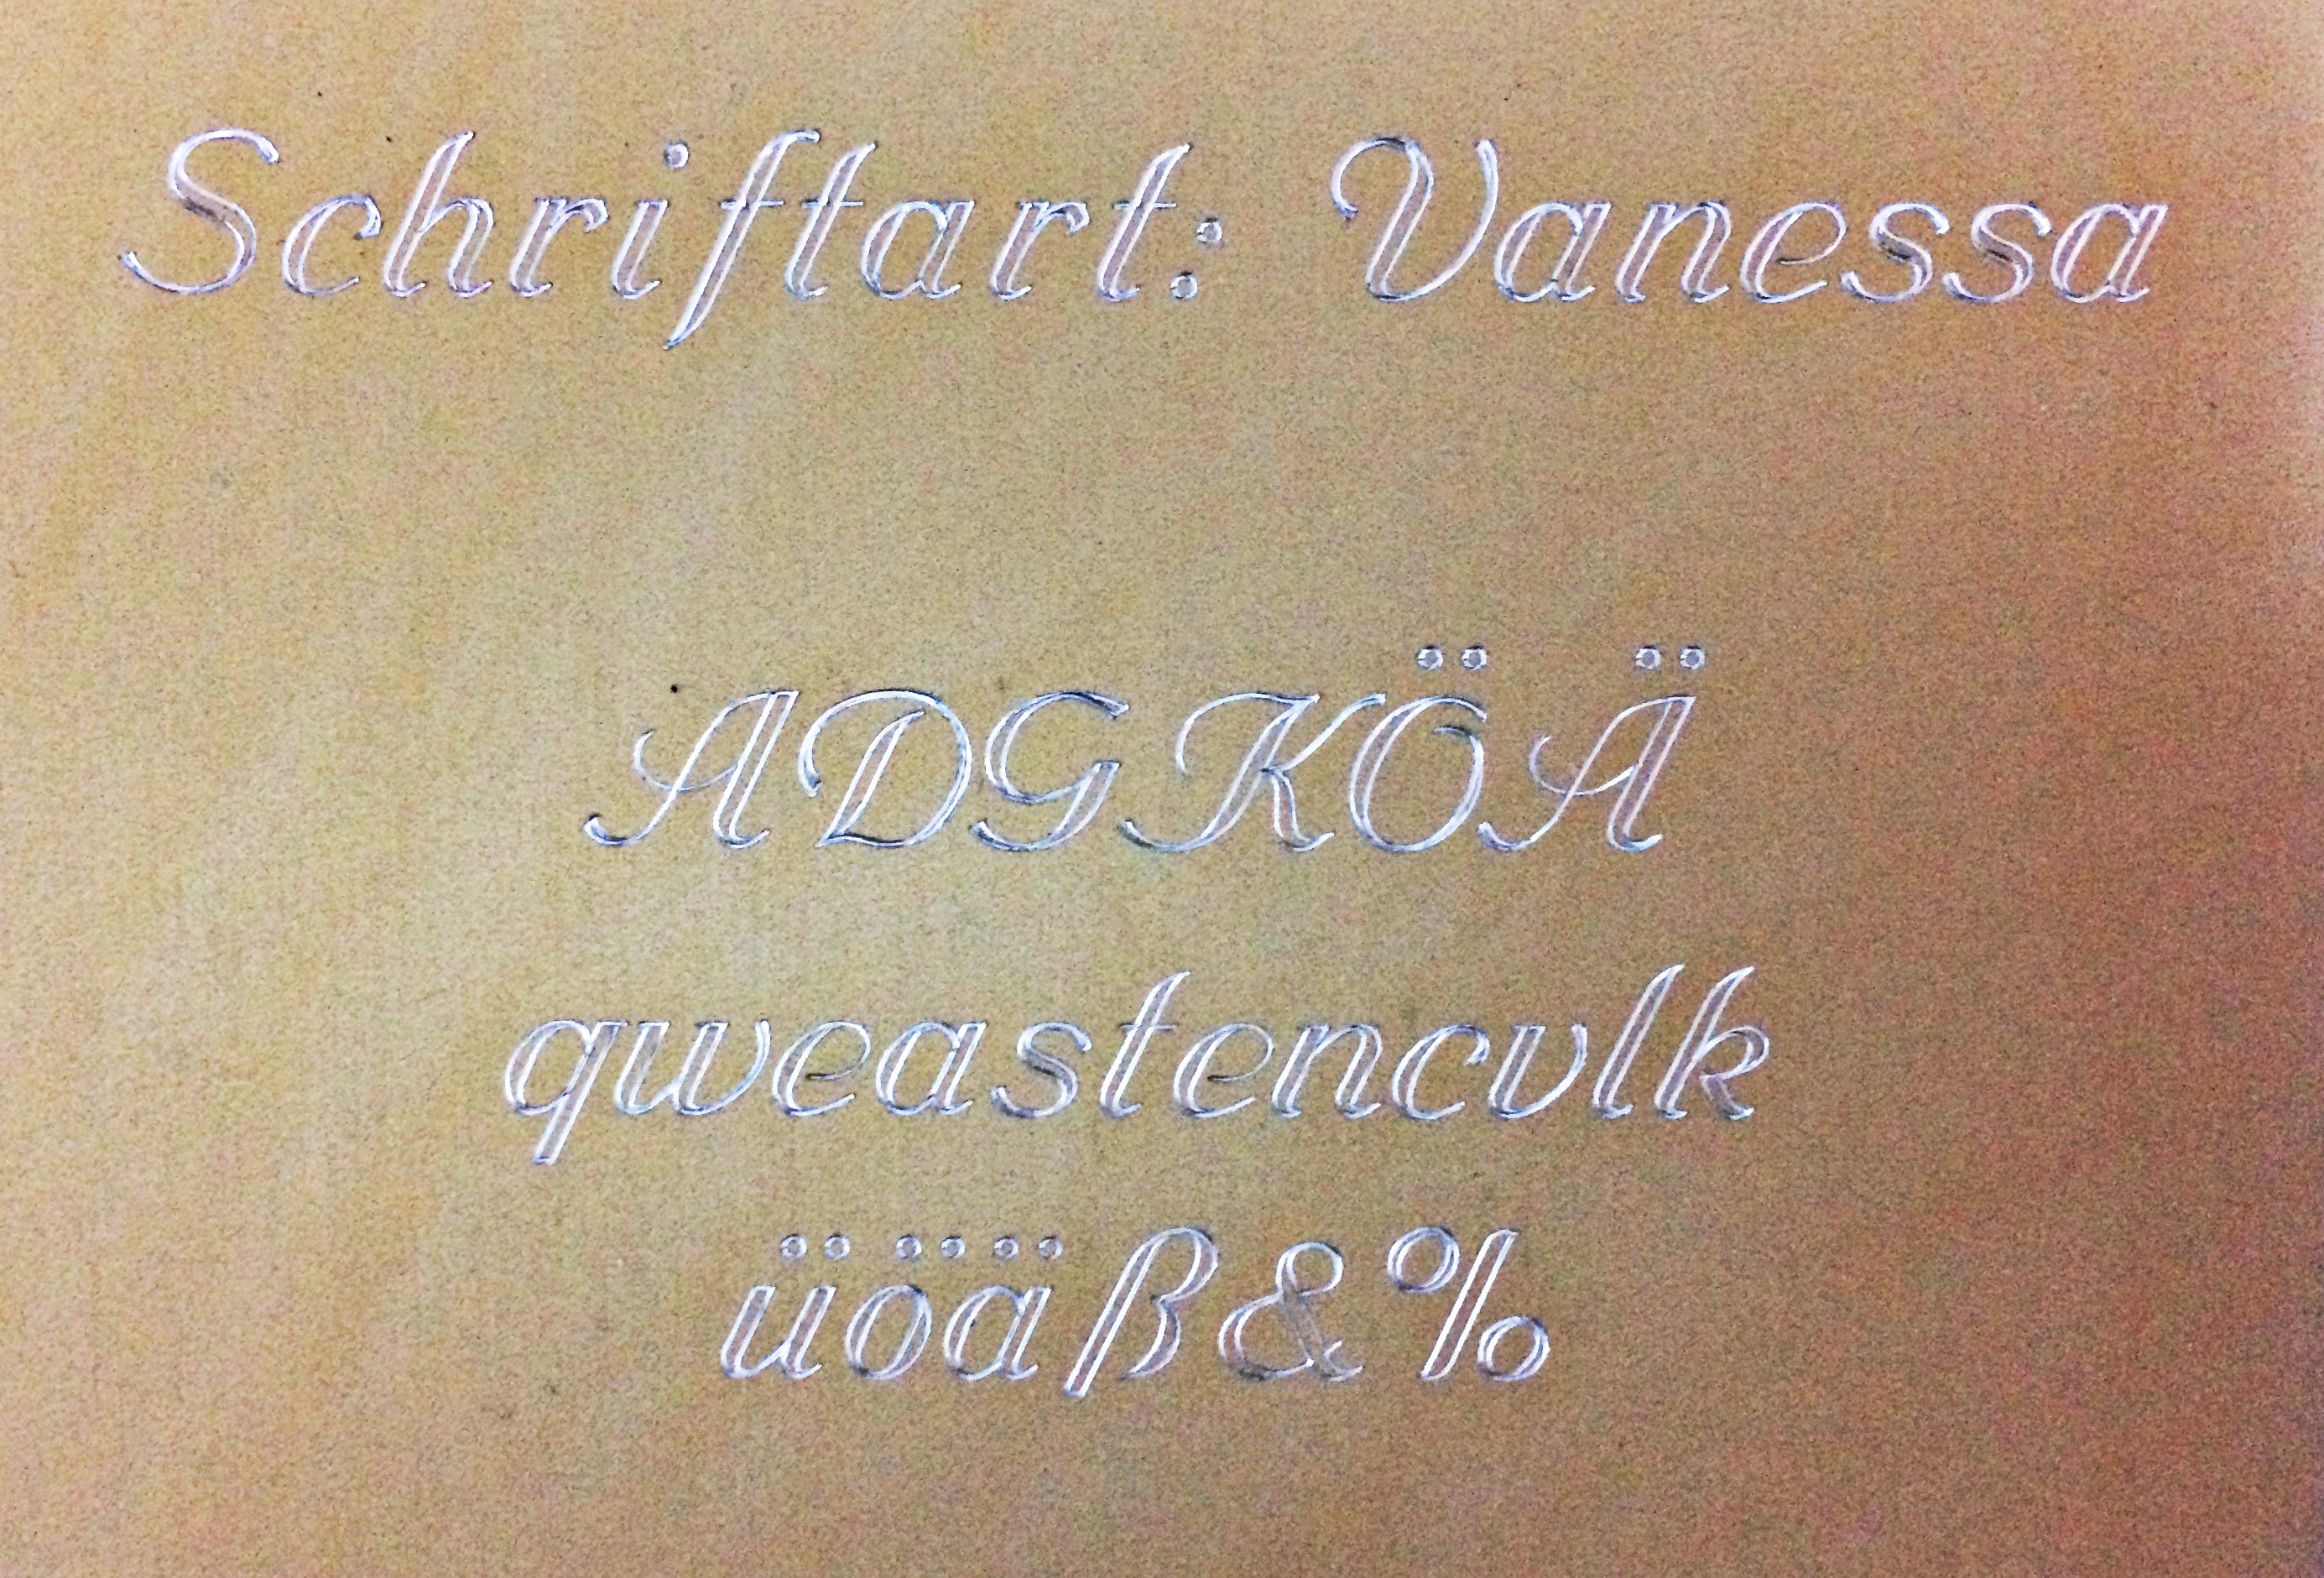 Schriftart: Vanessa
ADGKÖÄ
qweastencvlk
üöäß&%